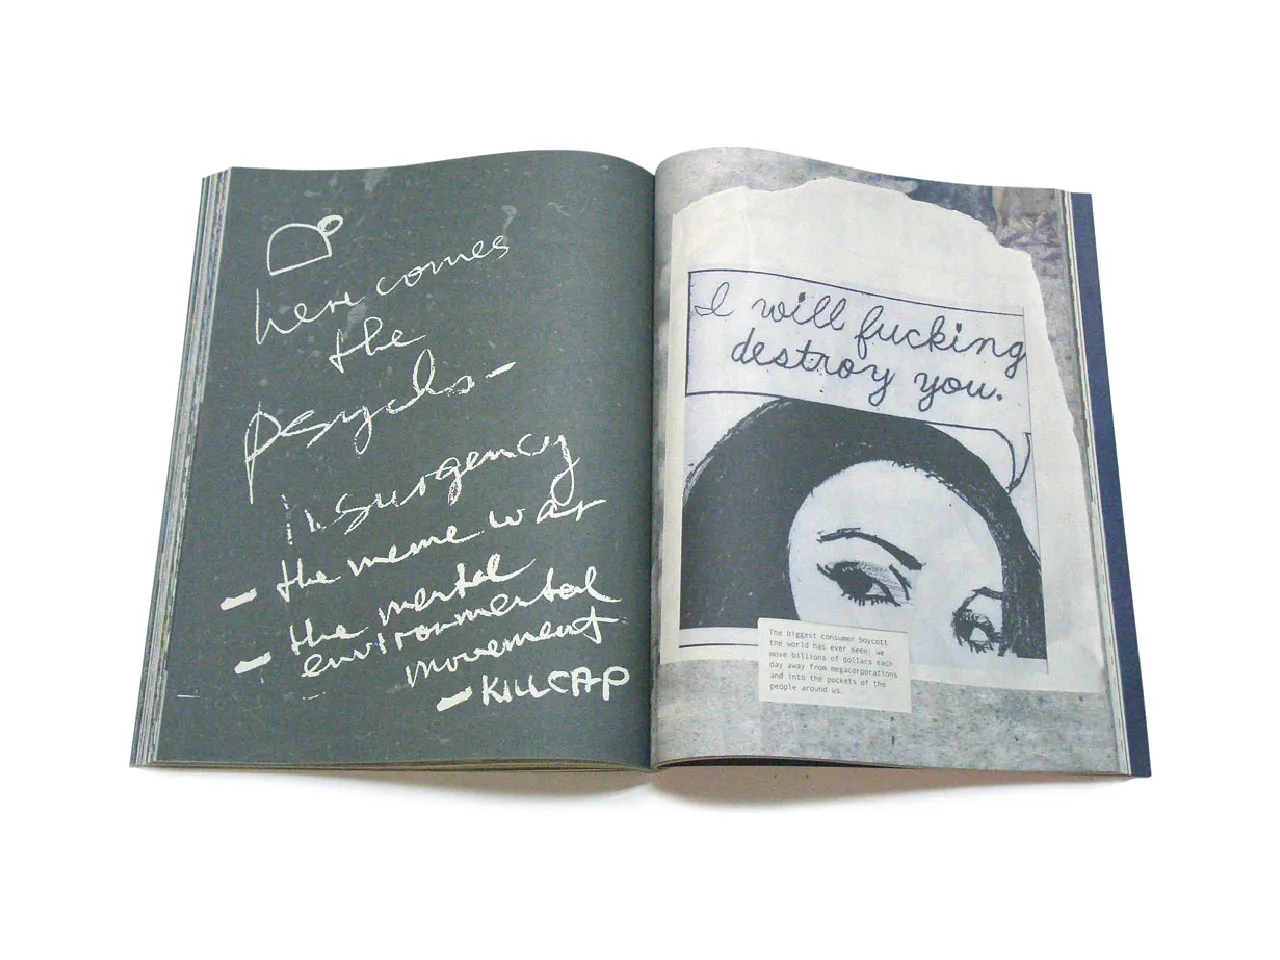 here comes
the
psycho-
insurgency
- the meme war
- the mental
environmental
movement
- KILLCAP
I will fucking
destroy you.
The biggest consumer boycott
the world has ever seen: we
move billions of dollars each
day away from megacorporations
and into the pockets of the
people around us.